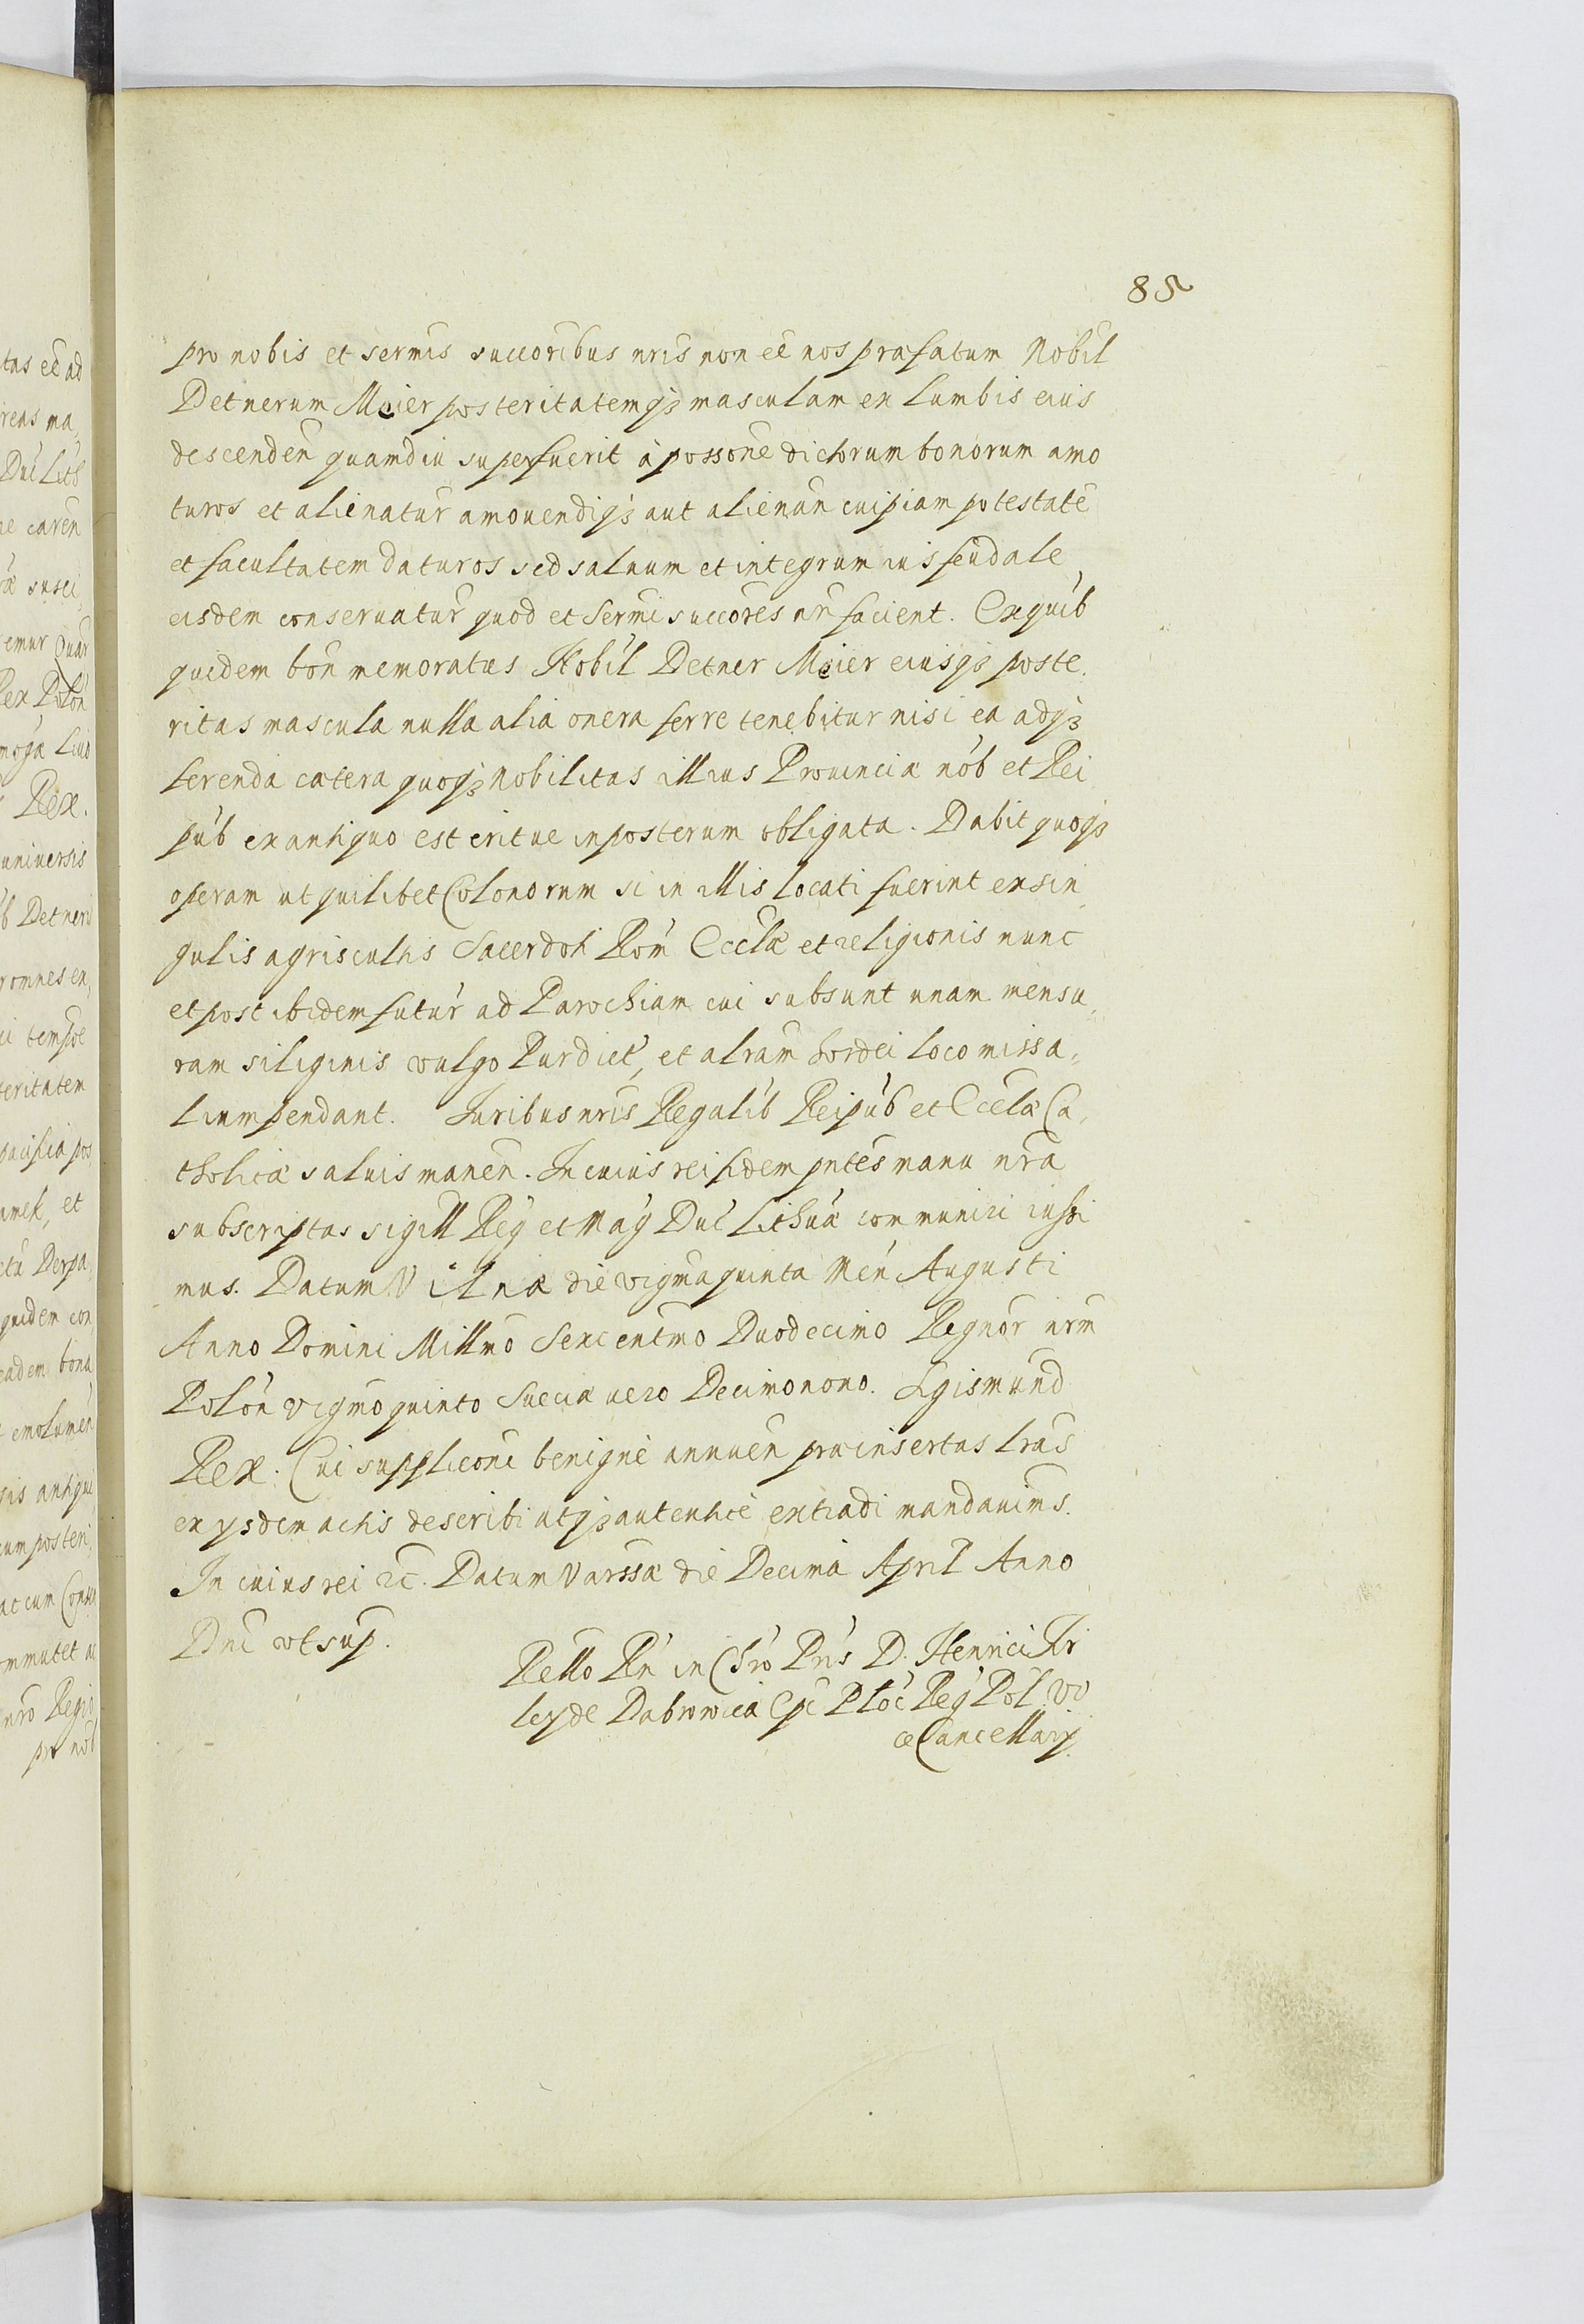 85
pro nobis et sermis succoribus nris non eē nos præfatum Nobil
Detnerum Meier posteritatemqз masculam ex Lumbis eius
descendeñ quamdiu superfuerit à possone dictorum bonorum amo
turos et alienatur̃ amouendiqз aut alienan̄ cuipiam potestatē
et facultatem daturos sed saluum et integrum ius feudale
eisdem conseruatur̃ quod et Sermi succores nr̃i facient. Ex quib
quidem bon̄ memoratus Nobil Detner Meier eiusqз poste,
ritas mascula nulla alia onera ferre tenebitur nisi ea ad qз
ferenda cætera quoqз Nobilitas illius Prouinciæ nob et Rei
pub ex antiquo est eritue inposterum obligata. Dabit quoqз
operam ut quilibet Colonorum si in illis locati fuerint ex sin,
gulis agris cultis Sacerdoti Rom̄ Ecclæ et religionis nunc
et post ibidem futur̃ ad Parochiam cui subsunt unam mensu,
ram siliginis vulgo Purdiet, et alram hordei loco missa,
lium pendant. Iuribus nris Regalib Reipub et Ecclæ Ca,
tholicæ saluis manen̄. In cuius rei fidem pntes manu nra
subscriptas sigill Reg et Mag Duc Lithuæ communiri iussi
mus. Datum Vilnæ die vigmaquinta Men̄ Augusti
Anno Domini Millmo Sexcentmo Duodecimo Regnor̃ nrm
Polon̄ vigmoquinto Sueciæ uero Decimonono. Sgismund
Rex. Cui suppliconi benigne annuen̄ præinsertas lras
ex ysdem actis describi atqз autentice extradi mandauims.
In cuius rei ꝛc. Datum Varssæ die Decima April Anno
Dni vt sup.
Rello Rn̄ in Chro Pris D. Henrici Fir
ley de Dabrowica Epi Ploc Reg Pol Vi
ce Cancellarÿ.
tas eē ad
reas ma,
Duc Lith
æ caren̄
emur Quar
Rex Polon̄
Rex.
uniuersis
b Detneri
omnes ex,
ti tempoe
teritatem
pacifica pos
amek, et
ctu Derpa,
quidem con,
eadem bona
emolumen̄
sis antiqui
cum posteri,
ac cum Conse
ommutet ac
nro Regio
pro nob